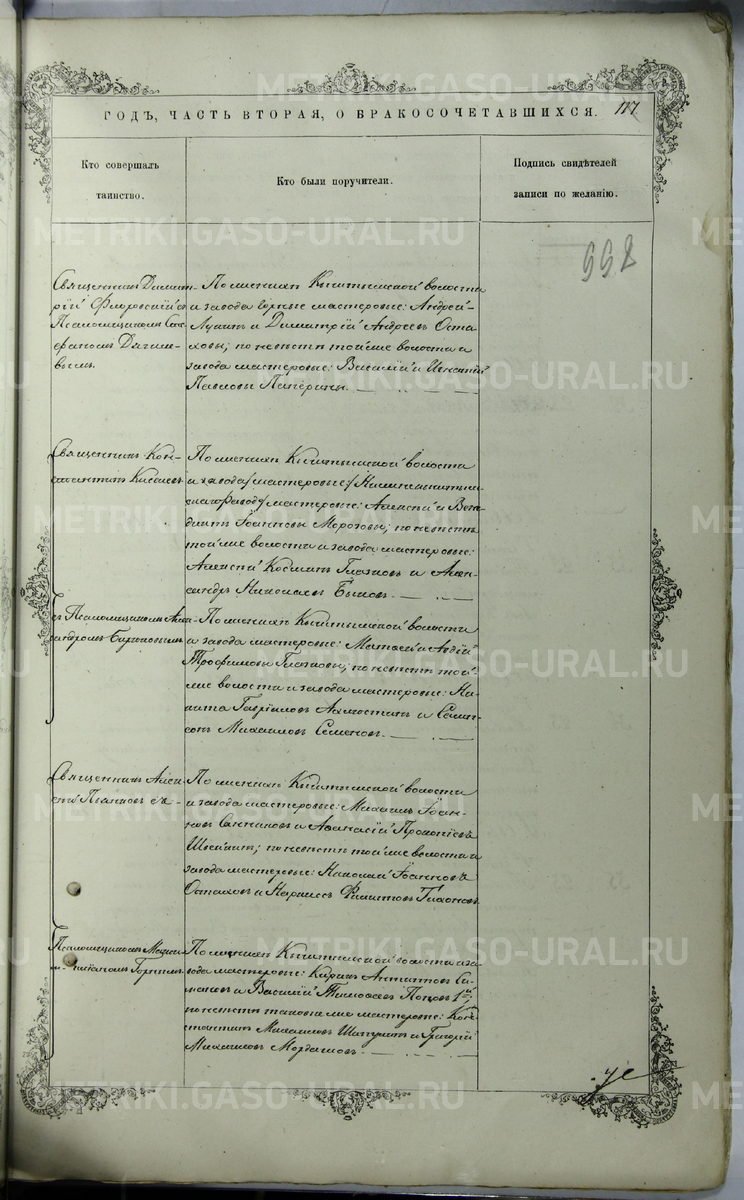 ГОДЪ, ЧАСТЬ ВТОРАЯ, О БРАКОСОЧЕТАВШИХСЯ.
117
Кто совершалъ
таинство.
Кто были поручители.
Подпись свидѣтелей
записи по желанію.
558
Священникъ Димит-
рій Флоровскій съ
Псаломщикомъ Сте-
фаномъ
По женихѣ Кыштымской волости
и завода горные мастеровые: Андрей
и Димитрій Андреевъ Оста-
ховы; по невѣстѣ той же волости и
завода мастеровые: Василій и Игнатій
Павловы
Священникъ Кон-
стантинъ
По женихѣ Кыштымской волости
и завода /мастеровые:/
завода/ мастеровые: Алексѣй и Вене-
диктъ Іоанновы Морозовы; по невѣстѣ
той же волости и завода мастеровые:
Алексѣй Козминъ Глазковъ и Алек-
сандръ Николаевъ Быковъ.
съ Псаломщикомъ Алек-
сандромъ Бирюковымъ
По женихѣ Кыштымской волости
и завода мастеровые: Матвѣй и Авдій
Трофимовы Глазковы; по невѣстѣ той
же волости и завода мастеровые: Ни-
кита Гавріиловъ и Самп-
сонъ Михаиловъ Семеновъ.
Священникъ Алек-
сѣй Пьянковъ съ
По женихѣ Кыштымской волости
и завода мастеровые: Михаилъ Іоан-
новъ и Аѳанасій Прокопіевъ
Швейкинъ; по невѣстѣ той же волости и
завода мастеровые: Николай Іоанновъ
Остаховъ и Наркиссъ Филиповъ Тихоновъ.
Псаломщикомъ Макси-
миліаномъ
По женихѣ Кыштымской волости и за-
вода мастеровые: Кирикъ Антиповъ Си-
мановъ и Василій Тимоѳеевъ Поповъ 1й;
по невѣстѣ таковые же мастеровые: Кон-
стантинъ Михаиловъ и Григорій
Михаиловъ Мордашовъ.
METRIKI.GASO-URAL.RU